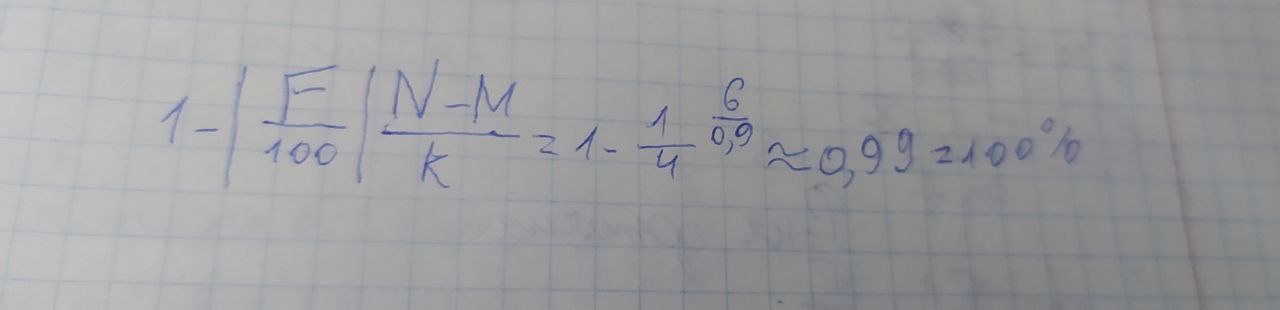 1-|F/100| N-M/k = 1 - 1/4 6/0,9 ≈ 0,99 = 100%